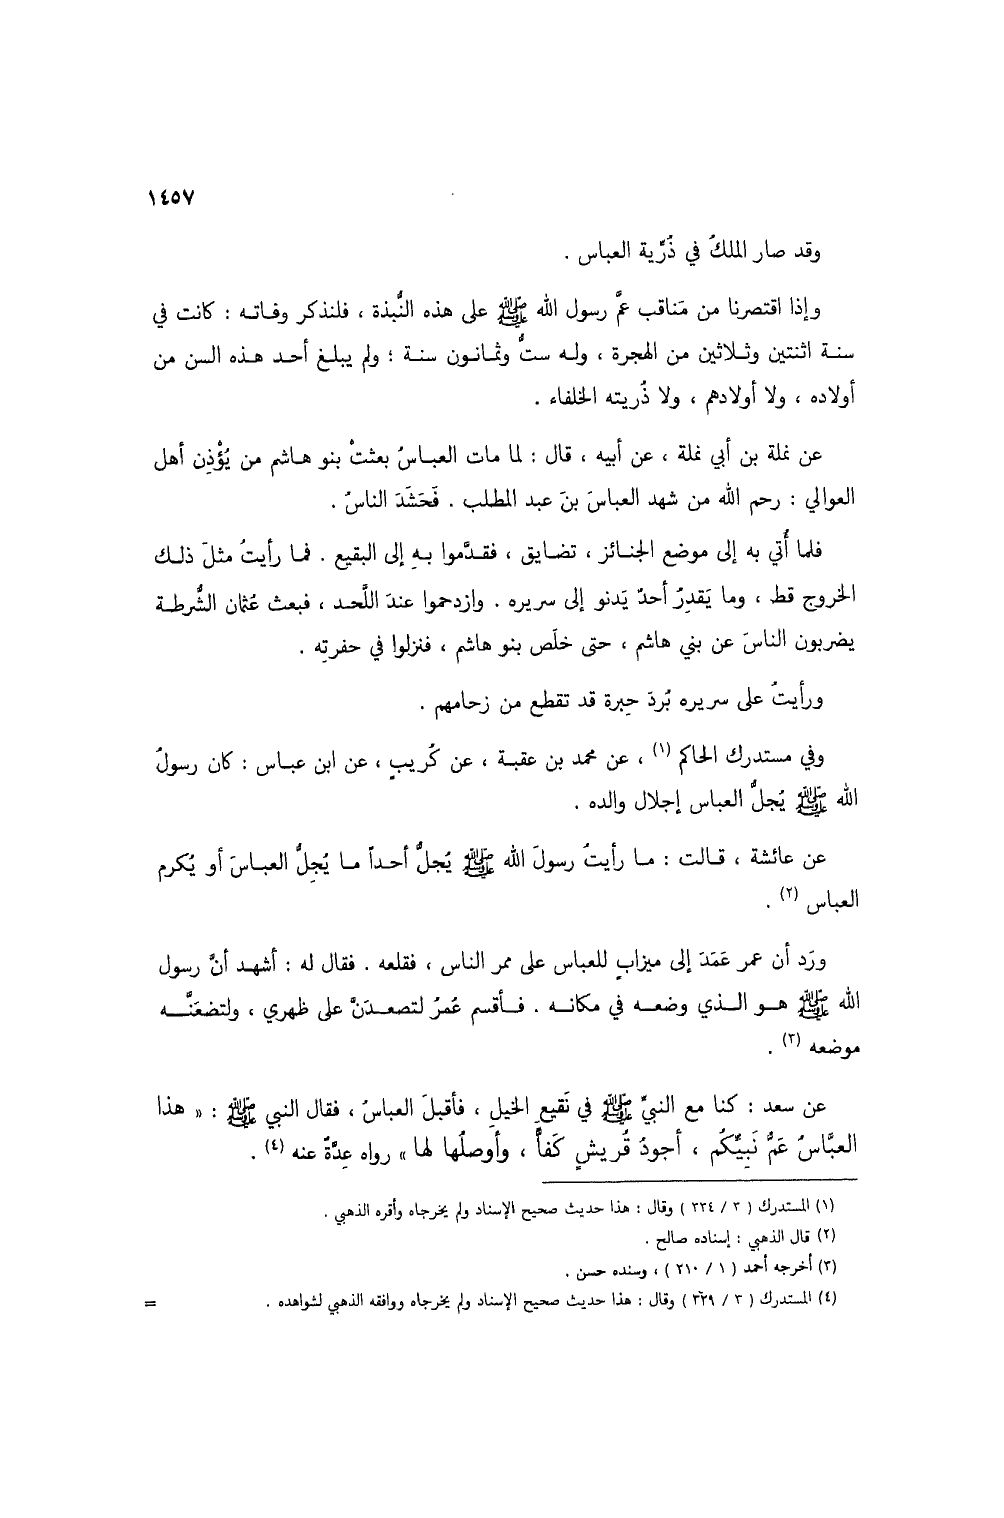 ١٤٥٧
وقد صار الملكُ في ذُرِّية العباس .
وإذا اقتصرنا من مَناقب عمَّ رسول الله ﷺ على هذه النُّبذة ، فلنذكر وفاته : كانت في
سنة اثنتين وثلاثين من الهجرة ، وله ستٌّ وثمانون سنة ؛ ولم يبلغ أحد هذه السن من
أولاده ، ولا أولادهم ، ولا ذُريته الخلفاء .
عن نملة بن أبي نملة ، عن أبيه ، قال : لما مات العباسُ بعثتْ بنو هاشم من يُؤْذِن أهل
العوالي : رحم الله من شهد العباسَ بنَ عبد المطلب . فَحَشَدَ الناسُ .
فلما أُتي به إلى موضع الجنائز ، تضايق ، فقدَّموا بهِ إلى البقيع . فما رأيتُ مثلَ ذلك
الخروج قط ، وما يَقدِرُ أحدٌ يَدنو إلى سريره . وازدحموا عندَ اللَّحد ، فبعث عُثمان الشُّرطة
يضربون الناسَ عن بني هاشم ، حتى خلَص بنو هاشم ، فنزلوا في حفرتِه .
ورأيتُ على سريره بُردَ حِبرة قد تقطع من زحامهم .
وفي مستدرك الحاكم (١) ، عن محمد بن عقبة ، عن كُريبٍ ، عن ابن عباس : كان رسولُ
الله ﷺ يُجلُّ العباس إجلال والده .
عن عائشة ، قالت : ما رأيتُ رسولَ الله ﷺ يُجلُّ أحداً ما يُجِلُّ العباسَ أو يُكرم
العباس (٢) .
ورَد أن عمر عَمَدَ إلى ميزابٍ للعباس على ممر الناس ، فقلعه . فقال له : أشهد أنَّ رسول
الله ﷺ هو الذي وضعه في مكانه . فأقسم عُمرُ لتصعدَنَّ على ظهري ، ولتضعَنَّه
موضعه (٣) .
عن سعد : كنا مع النبيِّ ﷺ في نَقيعِ الخيلِ ، فأقبلَ العباسُ ، فقال النبي ﷺ : « هذا
العبَّاسُ عَمُّ نَبِيِّكُم ، أجودُ قُريشٍ كَفاًّ ، وأوصلُها لها » رواه عِدَّةٌ عنه (٤) .
(١) المستدرك ( ٣ / ٣٣٤ ) وقال : هذا حديث صحيح الإسناد ولم يخرجاه وأقره الذهبي .
(٢) قال الذهبي : إسناده صالح .
(٣) أخرجه أحمد ( ١ / ٢١٠ ) ، وسنده حسن .
(٤) المستدرك ( ٣ / ٣٢٩ ) وقال : هذا حديث صحيح الإسناد ولم يخرجاه ووافقه الذهبي لشواهده . =